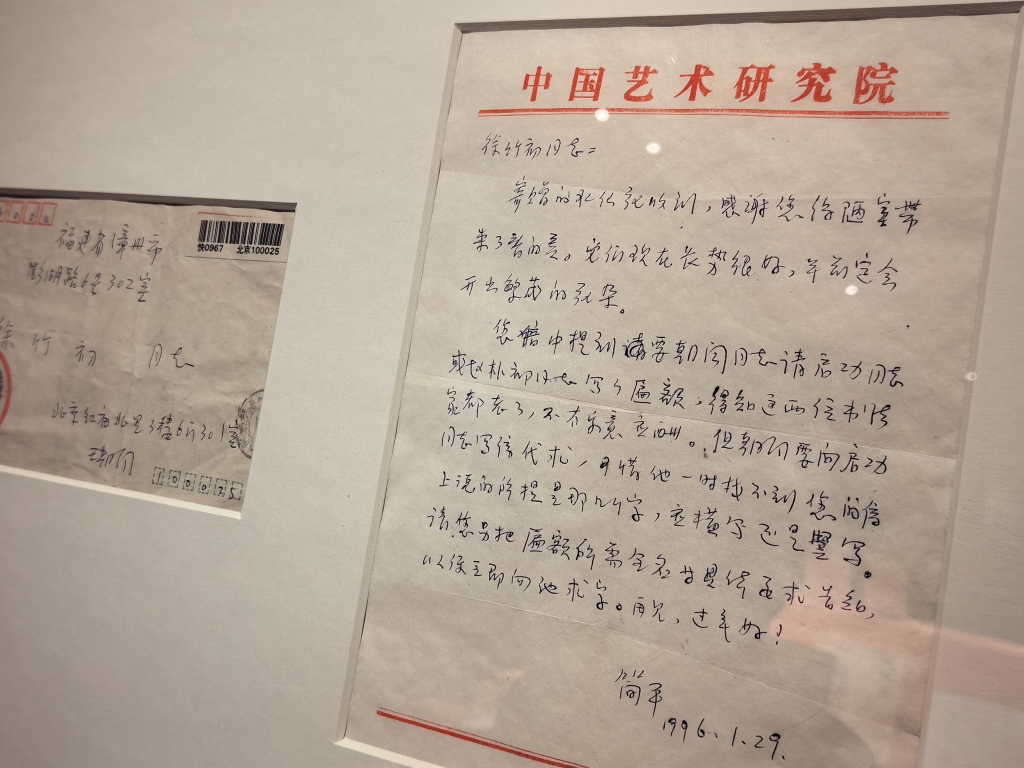 福建省漳州市
彭湖路6号302室
徐竹初 同志
北京红庙北里3楼6门301室
王朝闻
100025
快0967 北京100025
中国艺术研究院
徐竹初同志:
寄赠的水仙花收到,感谢您给陋室带
来了春的美。它们现在长势很好,年前定会
开出繁茂的花朵。
您 中提到请要朝闻同志请启功同志
或赵朴初同志写个匾额,得知这两位书法
家都老了,不大乐意应酬。但朝闻要向启功
同志写信代求,可惜他一时找不到您的信
上说的 是那几个字,应横写还是竖写。
请您另把匾额所需全名与具体要求告知,
以便立即向他求字。再见,过年好!
简平
1996.1.29.